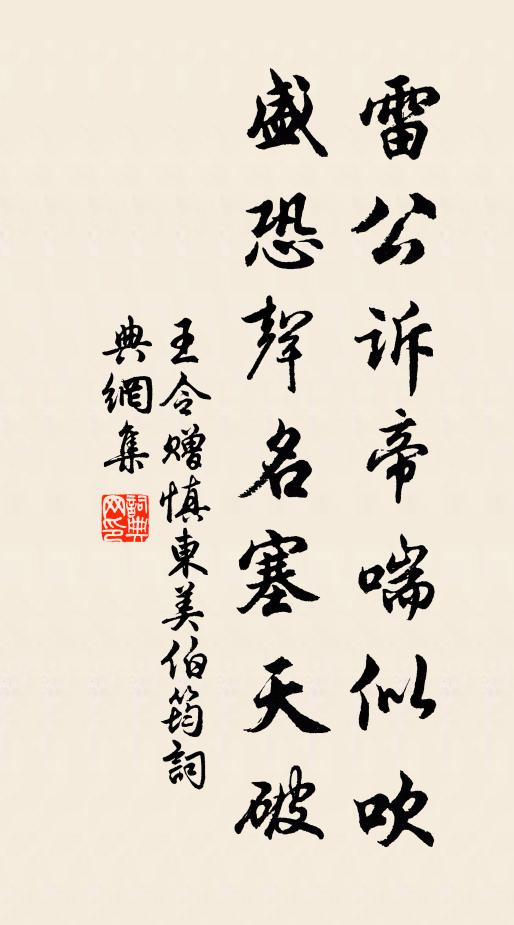 雷公訴帝喘似吹
盛恐聲名塞天破
王令贈慎東美伯筠詞
典網集
詞典網印